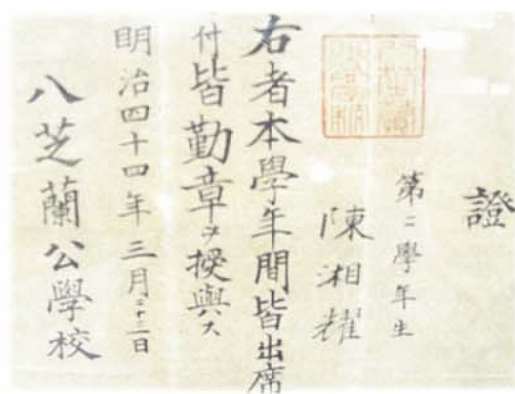 證
第二學年生
陳湘耀
右者本學年間皆出席
付皆勤章ヲ授與ス
明治四十四年三月二十三日
八芝蘭公學校